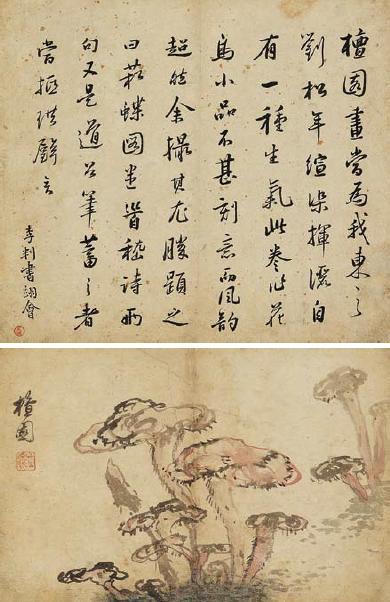 檀園畫當為我東之
劉松年渲染揮灑自
有一種生氣此卷作花
鳥小品不甚刻意而風韻
超然余撮其尤勝題之
曰蝶園皆詩
句又是道公筆蓄之者
當珙璧
李判書翊會
檀園